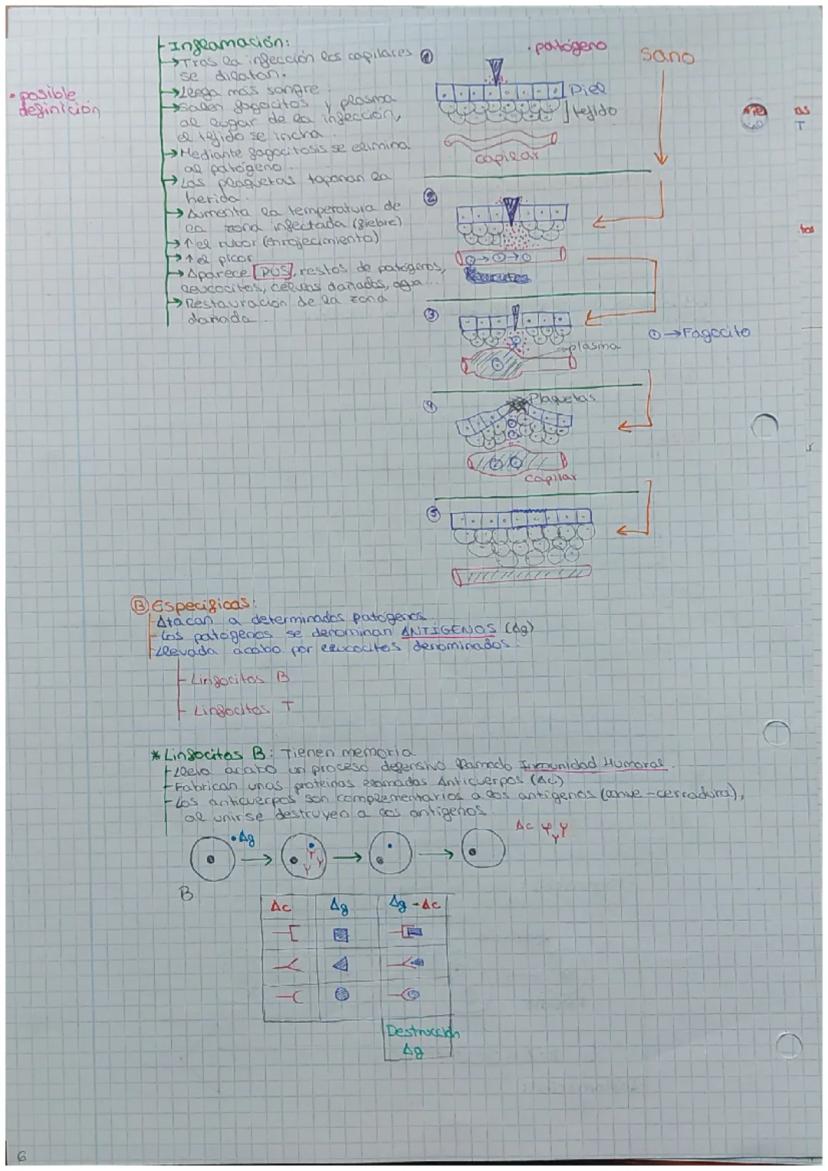 - Inflamación:
→ Tras la infección los capilares
se dilatan.
→ Llega más sangre
→ Salen fagocitos y plasma
al lugar de la infección,
el tejido se incha
→ Mediante fagocitosis se elimina
al patógeno.
→ Las plaquetas taponan la
herida.
→ Aumenta la temperatura de
la zona infectada (fiebre)
→ ↑ el rubor (enrojecimiento)
→ ↑ el picor
→ Aparece PUS, restos de patógenos,
leucocitos, células dañadas, agua...
→ Restauración de la zona
dañada...
• posible
definición
①
• patógeno
sano
Piel
tejido
capilar
②
③
plasma
① → Fagocito
④
Plaquetas
capilar
⑤
as
T
tos
Ⓑ Específicas:
- Atacan a determinados patógenos
- Los patógenos se denominan ANTÍGENOS (Ag)
- Llevada acabo por leucocitos denominados:
- Linfocitos B
- Linfocitos T
* Linfocitos B: Tienen memoria
- Lleva acabo un proceso defensivo llamado Inmunidad Humoral.
- Fabrican unas proteínas llamadas Anticuerpos (Ac)
- Los anticuerpos son complementarios a los antígenos (llave-cerradura),
al unirse destruyen a los antígenos.
• Ag
Ac
B
Ac Ag Ag - Ac
Destrucción
Ag
6